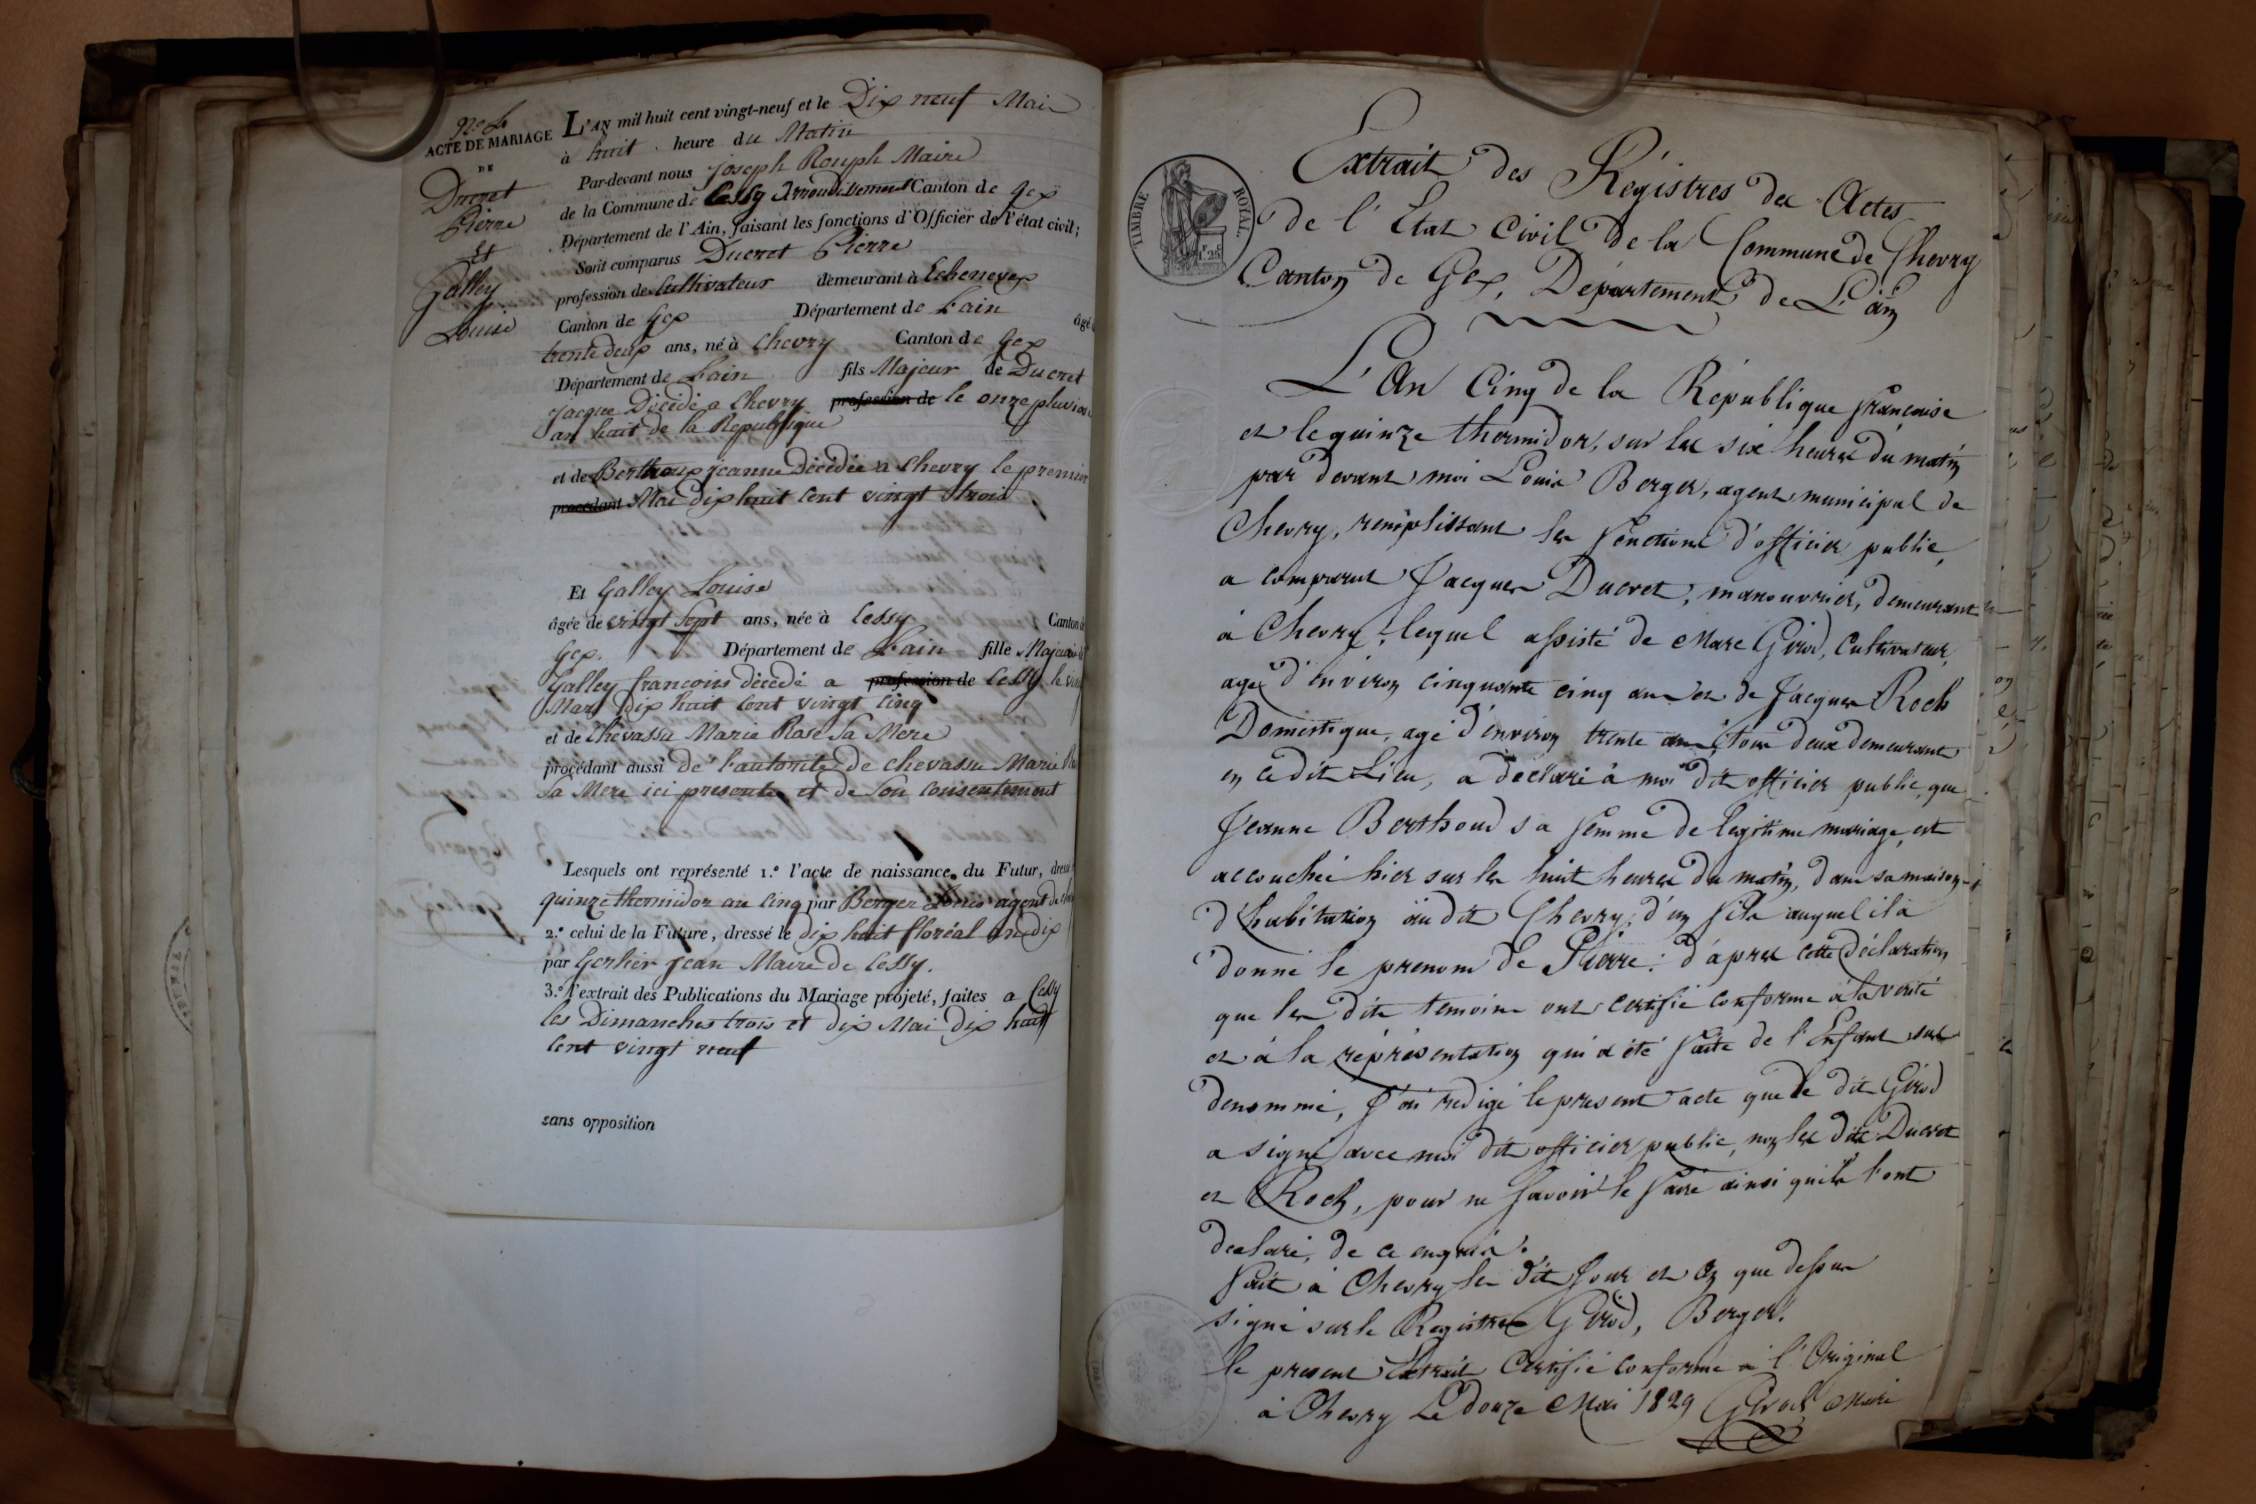 ACTE DE MARIAGE
DE
Ducret
Pierre
et
Galley
Louise
L'AN mil huit cent vingt-neuf et le Dix neuf Mai
à huit heure du Matin
Par-devant nous joseph Rouph Maire
de la Commune de Cessy Arrondissement Canton de Gex
Département de l'Ain, faisant les fonctions d'Officier de l'état civil;
Sont comparus Ducret Pierre
profession de Cultivateur demeurant à Echenevex
Canton de Gex Département de Lain âgé
trente deux ans, né à Chevry Canton de Gex
Département de Lain fils Majeur de Ducret
jacque Décédé a Chevry profession de le onze pluviose
an huit de la Republique
et de Berthoux jeanne Décédée a Chevry le premier
procédant Mai dix huit Cent vingt trois
Et Galley Louise
âgée de vingt Sept ans, née à Cessy Canton de
Gex. Département de Lain fille Majeure de
Galley francois décédé a profession de Cessy le
Mars dix huit Cent vingt Cinq
et de Chevassu Marie Rose Sa Mere
procédant aussi de l'autorite de Chevassu Marie
Sa Mere ici presente et de Son Consentement
Lesquels ont représenté 1.º l'acte de naissance du Futur, dressé
quinze thermidor an Cinq par Berger Louis agent de
2.º celui de la Future, dressé le dix huit floréal an dix
par Gerlier jean Maire de Cessy.
3.º l'extrait des Publications du Mariage projeté, faites a Cessy
les Dimanches trois et dix Mai dix huit
Cent vingt neuf
sans opposition
TIMBRE ROYAL.
Extrait des Régistres des Actes
de l'Etat Civil de la Commune de Chevry
Canton de Gex, Département de L'ain
L'An Cinq de la République francaise
et le quinze thermidor, sur les six heures du matin
par devant moi Louis Berger, agent municipal de
Chevry, remplissant les fonctions d'officier public,
a comparut Jacques Ducret, manouvrier, demeurant
à Chevry, lequel assisté de Marc Girod, Cultivateur,
agé d'environ cinquante cinq ans et de Jacques Roch
Domestique, agé d'environ trente ans, tous deux demeurant
en ce dit Lieu, a déclaré à moi dit officier public, que
Jeanne Berthoud sa femme de legitime mariage, est
accouchée hier sur les huit heures du matin, dans sa maison
d'habitation au dit Chevry, d'un fils auquel il a
donné le prenom de Pierre: d'après cette déclaration
que les dits temoins ont certifié conforme à la verité
et à la réprésentation qui a été faite de l'Enfant sus
denommé, J'ai redigé le present acte que le dit Girod
a signé avec moi dit officier public, non les dits Ducret
et Roch, pour ne savoir le faire ainsi qu'ils l'ont
declaré, de ce enquis.
fait à Chevry les dit jour et an que dessus
signé sur le Registre Girod, Berger.
le present Extrait Certifié conforme à l'Original
à Chevry Le douze Mai 1829 Girod Maire